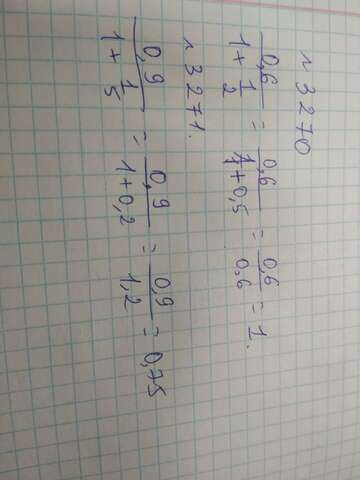 n 3270
0,6/(1+1/2) = 0,6/(1+0,5) = 0,6/0,6 = 1.
n 3271.
0,9/(1+1/5) = 0,9/(1+0,2) = 0,9/1,2 = 0,75